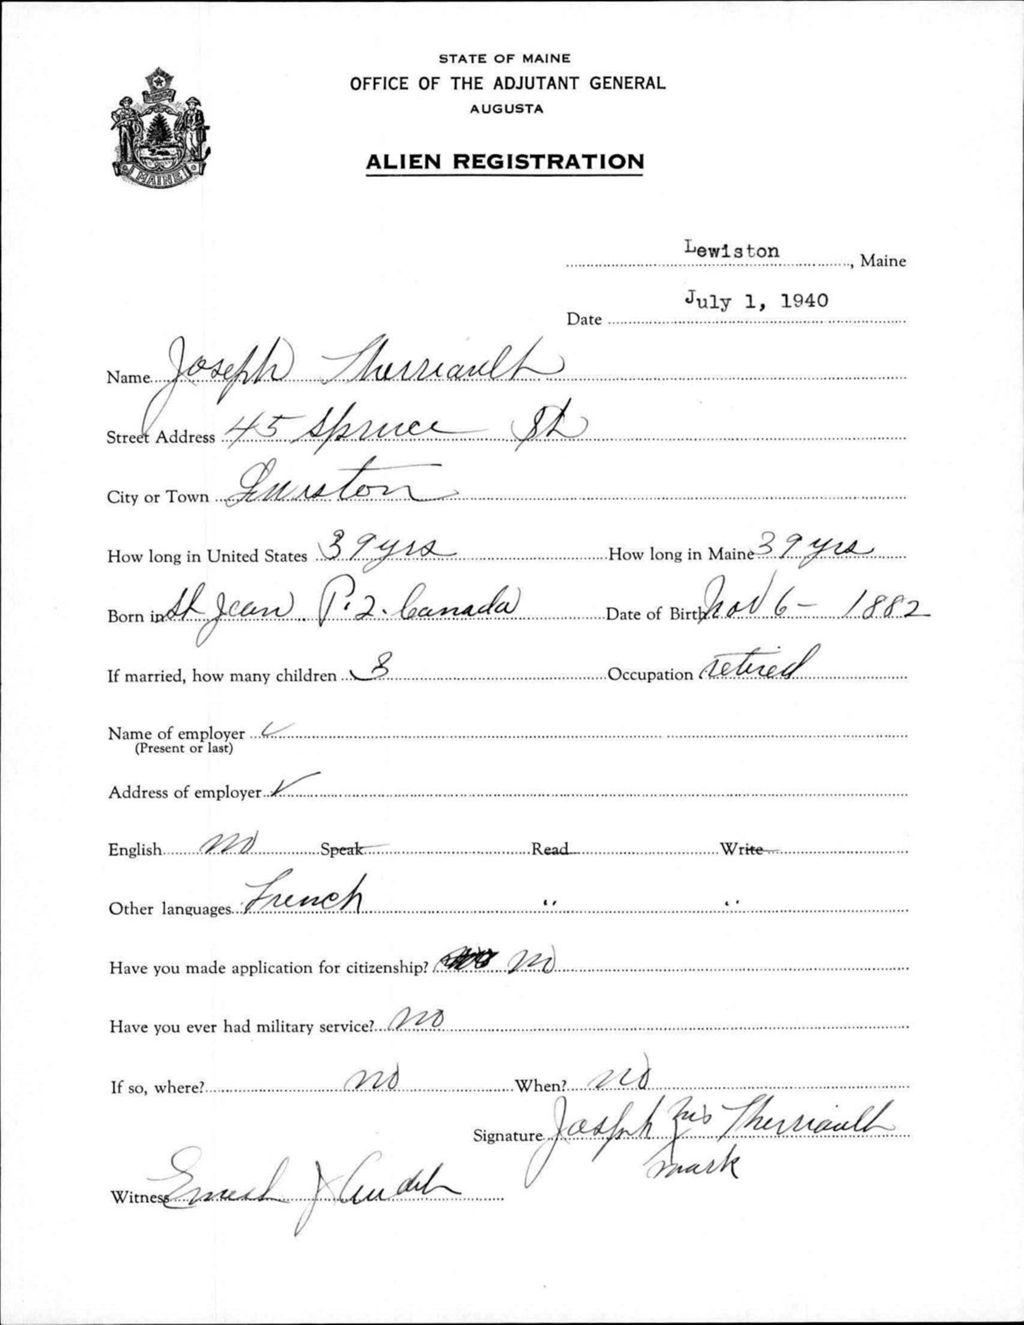 STATE OF MAINE
OFFICE OF THE ADJUTANT GENERAL
AUGUSTA
ALIEN REGISTRATION
MAINE
Lewiston, Maine
Date July 1, 1940
Name Joseph Therriault
Street Address 45 Spruce St
City or Town Lewiston
How long in United States 39 yrs How long in Maine 39 yrs
Born in St Jean P.Q. Canada Date of Birth Nov 6 - 1882
If married, how many children 3 Occupation retired
Name of employer ✓
(Present or last)
Address of employer ✓
English no Speak Read Write
Other languages French " "
Have you made application for citizenship? no
Have you ever had military service? no
If so, where? no When? no
Signature Joseph his Therriault
mark
Witness Ernest J